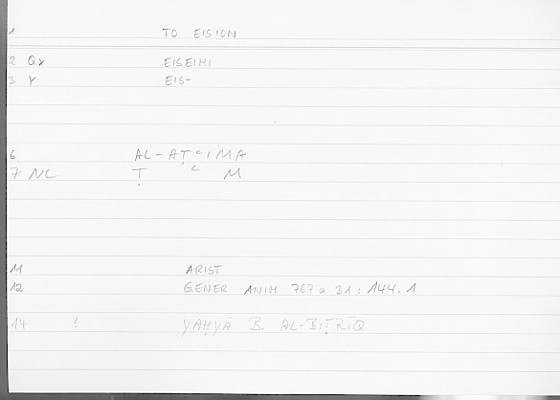 1 TO EISION
2 Qx EISEIMI
3 Y EIS-
6 AL-AṬʿIMA
7 NL Ṭ ʿ M
11 ARIST
12 GENER ANIM 767a 31 : 144.1
14 ? YAḤYĀ B. AL-BIṬRĪQ